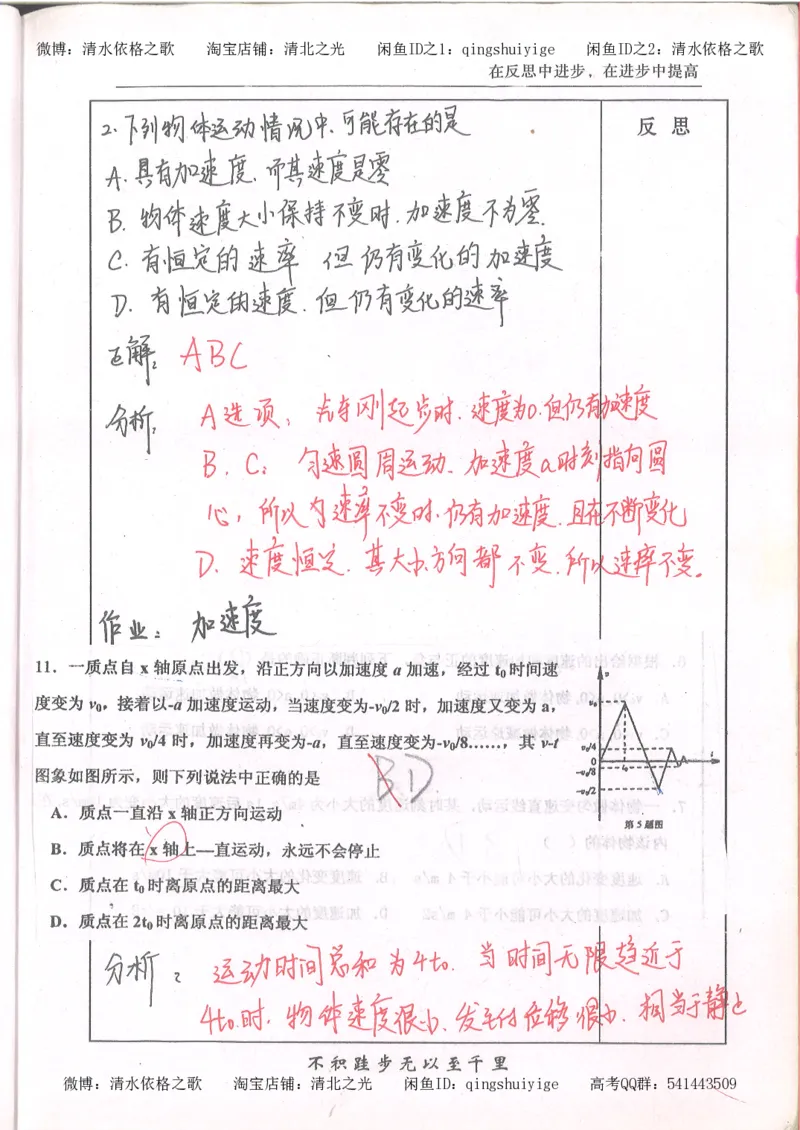 微博：清水依格之歌 淘宝店铺：清北之光 闲鱼ID之1：qingshuiyige 闲鱼ID之2：清水依格之歌
在反思中进步，在进步中提高
反 思
2.下列物体运动情况中,可能存在的是
A.具有加速度,而其速度是零
B.物体速度大小保持不变时.加速度不为零.
C.有恒定的速率 但仍有变化的加速度
D.有恒定的速度.但仍有变化的速率
正解： ABC
分析： A选项：汽车刚起步时.速度为0.但仍有加速度
B.C：匀速圆周运动.加速度a时刻指向圆
心，所以匀速率不变时.仍有加速度.且在不断变化
D.速度恒定.其大小方向都不变.所以速率不变。
作业：加速度
11．一质点自 x 轴原点出发，沿正方向以加速度 a 加速，经过 t₀ 时间速
度变为 v₀，接着以-a 加速度运动，当速度变为-v₀/2 时，加速度又变为 a，
直至速度变为 v₀/4 时，加速度再变为-a，直至速度变为-v₀/8……，其 v-t
图象如图所示，则下列说法中正确的是
BD
A．质点一直沿 x 轴正方向运动
B．质点将在 x 轴上一直运动，永远不会停止
C．质点在 t₀ 时离原点的距离最大
D．质点在 2t₀ 时离原点的距离最大
v
v₀
v₀/4
0
-v₀/8
-v₀/2
t₀
t
第 5 题图
分析： 运动时间总和为4t₀. 当时间无限趋近于
4t₀时.物体速度很小.发生的位移很小.相当于静止
不积跬步无以至千里
微博：清水依格之歌 淘宝店铺：清北之光 闲鱼ID：qingshuiyige 高考QQ群：541443509